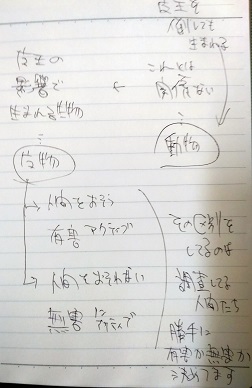 倒しても
生まれる
これとは
関係ない
動物
影響で
生まれる生物
生物
人間をおそう
有害 アクティブ
人間をおそわない
無害
その区別を
してるのは
調査してる
人間たち
勝手に
有害か無害か
決めてます